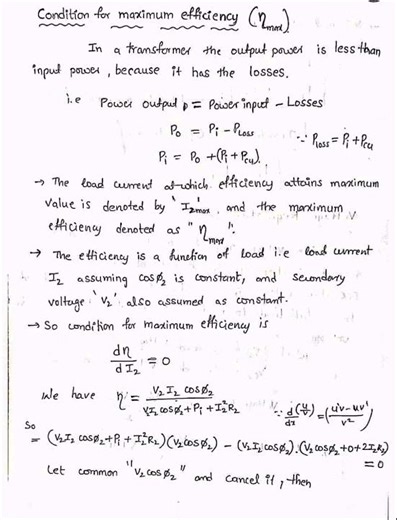 Condition for maximum efficiency (η_max)
In a transformer the output power is less than
input power, because it has the losses.
i.e Power output P = Power input - Losses
P₀ = Pᵢ - P_Loss ∵ P_Loss = Pᵢ + P_cu
Pᵢ = P₀ + (Pᵢ + P_cu).
→ The load current at which efficiency attains maximum
value is denoted by 'I₂max' and the maximum
efficiency denoted as "η_max".
→ The efficiency is a function of load i.e load current
I₂ assuming cosø₂ is constant, and secondary
voltage 'V₂' also assumed as constant.
→ So condition for maximum efficiency is
dη/dI₂ = 0
We have η = V₂I₂ cosø₂ / V₂I₂ cosø₂ + Pᵢ + I₂²R₂ ∵ d/dx (u/v) = (u'v - uv' / v²)
So
= (V₂I₂ cosø₂ + Pᵢ + I₂²R₂)(V₂cosø₂) - (V₂I₂ cosø₂).(V₂cosø₂ + 0 + 2I₂R₂)
= 0
Let common "V₂cosø₂" and cancel it, then